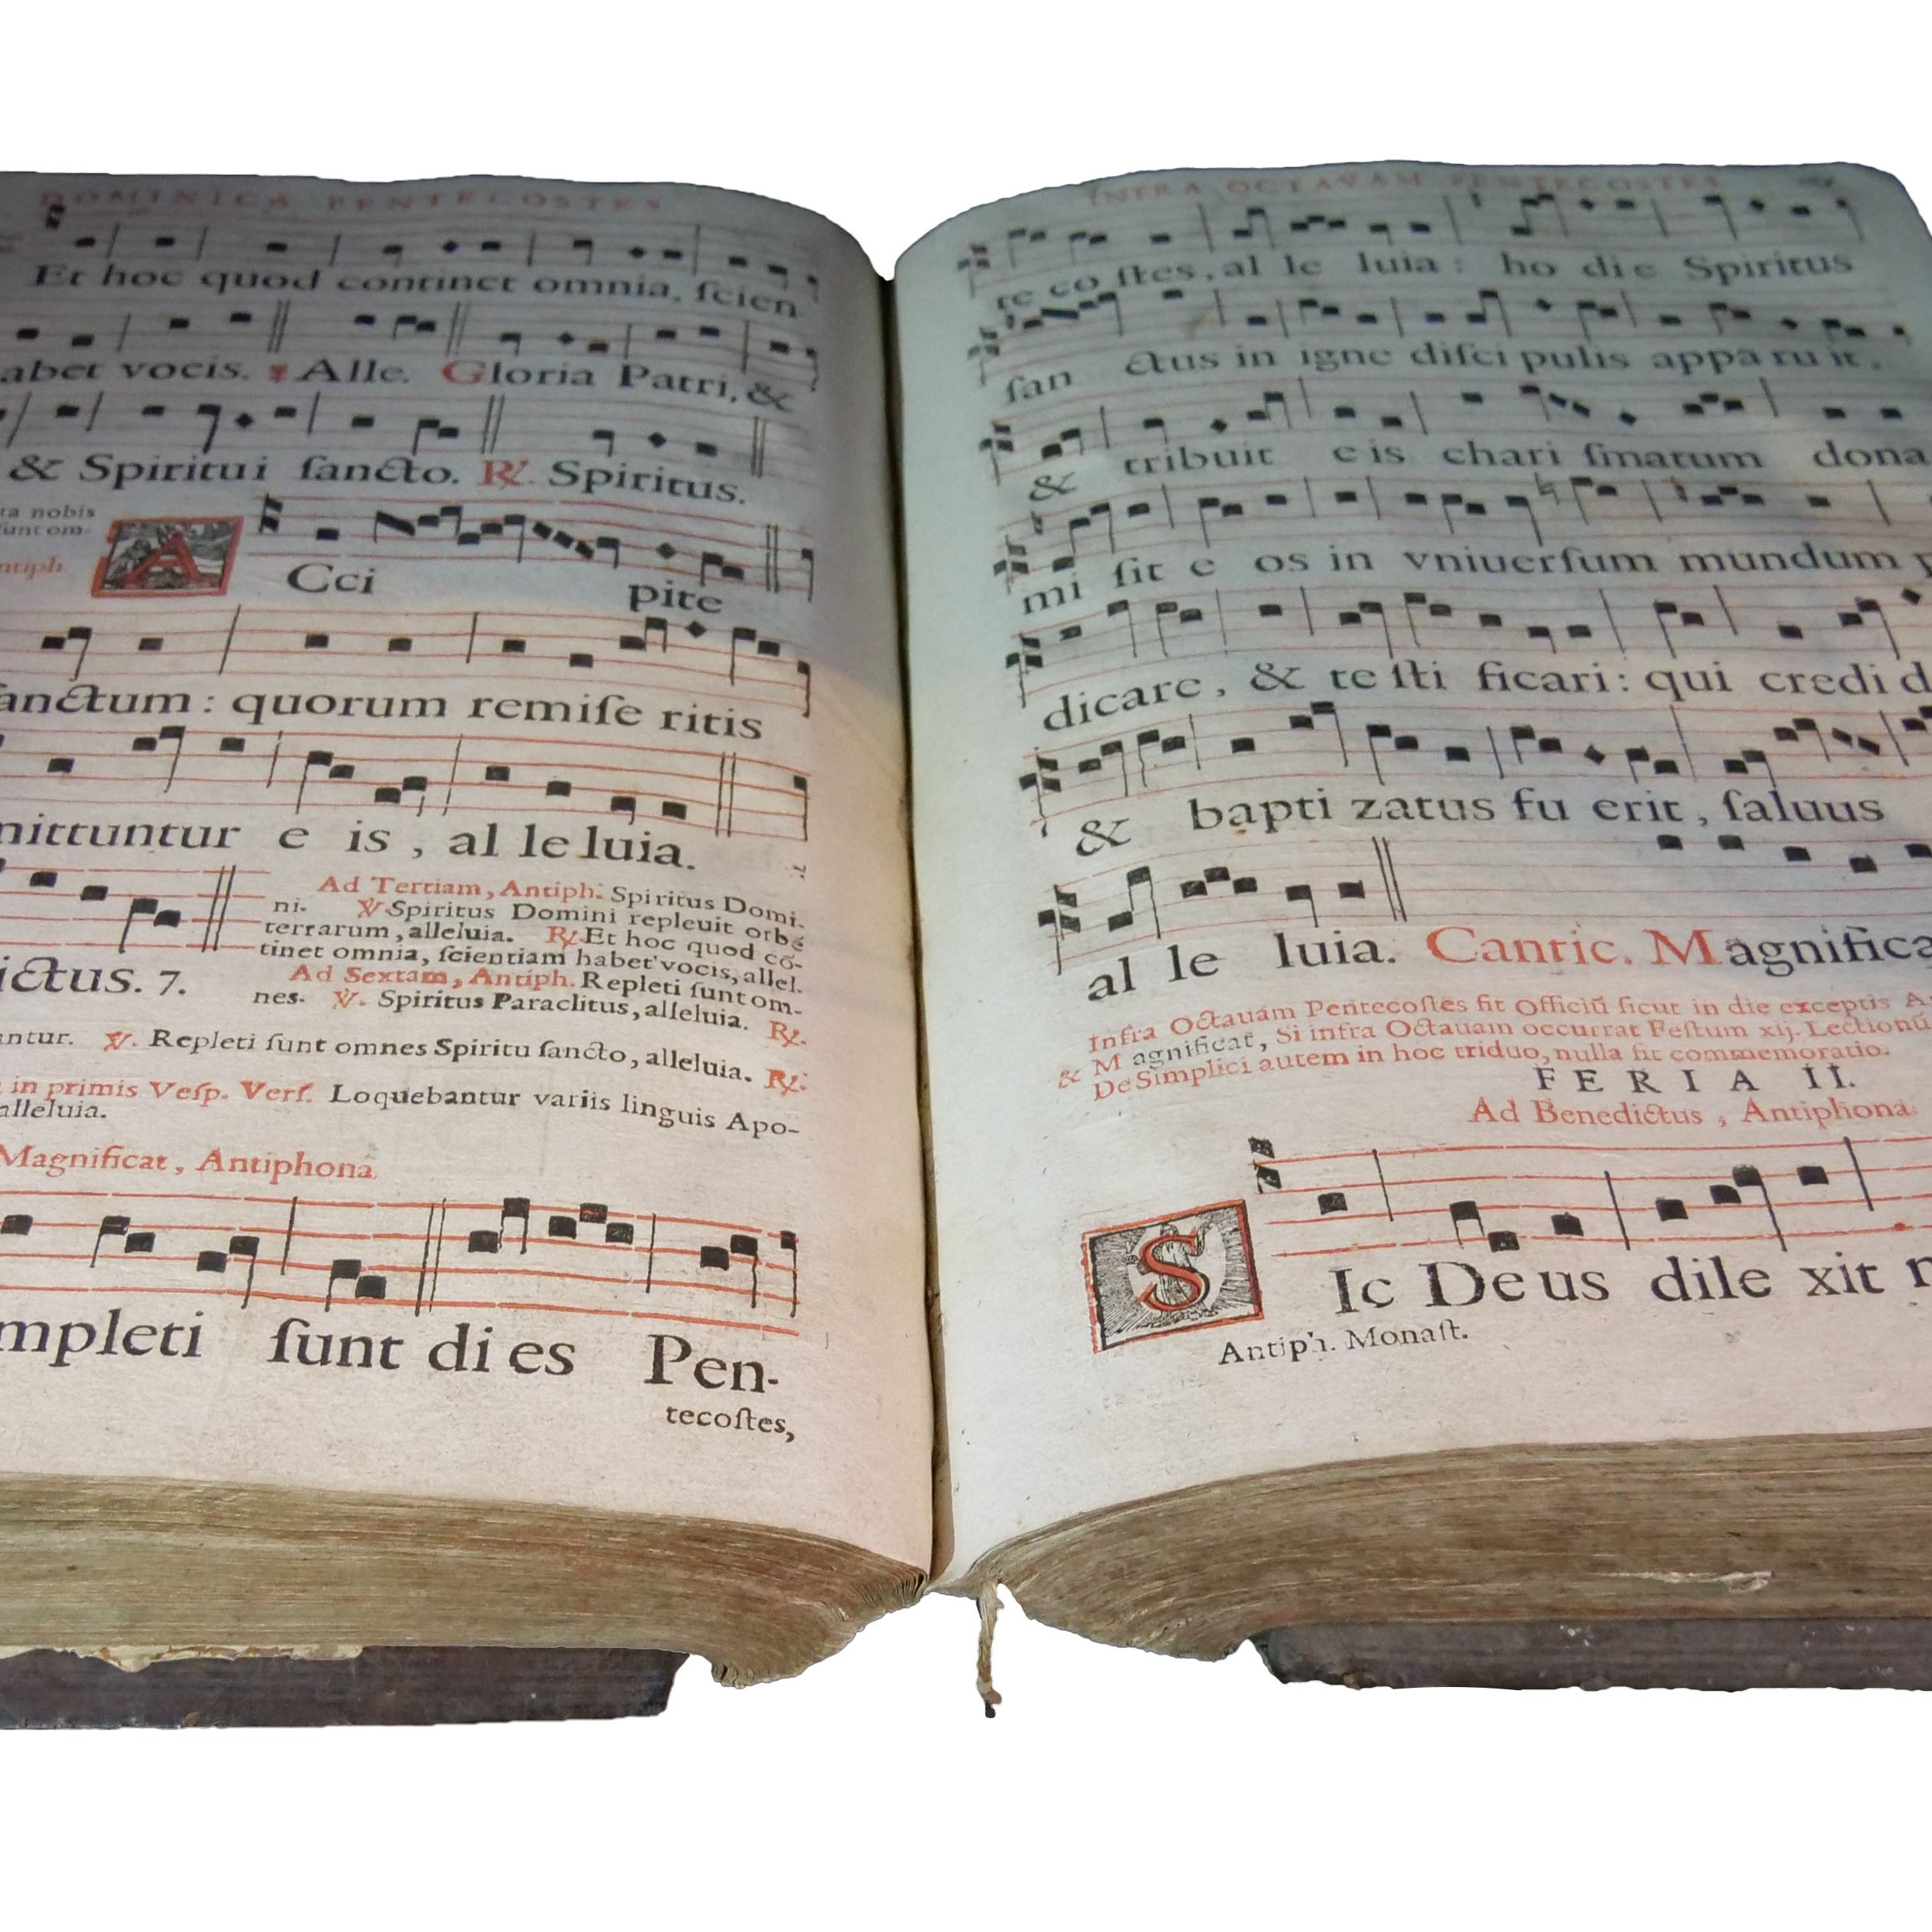 DOMINICA PENTECOSTES
Et hoc quod continet omnia, ſcien
abet vocis. Alle. Gloria Patri, &
& Spiritui ſancto. ℟. Spiritus.
ta nobis
ſunt om-
ntiph
A Cci pite
anctum : quorum remiſe ritis
mittuntur e is , al le luia.
Ad Tertiam, Antiph. Spiritus Domi-
ni. ℣. Spiritus Domini repleuit orbē
terrarum, alleluia. ℟. Et hoc quod cō-
tinet omnia, ſcientiam habet vocis, allel.
ictus. 7.
Ad Sextam, Antiph. Repleti ſunt om-
nes. ℣. Spiritus Paraclitus, alleluia. ℟.
ntur. ℣. Repleti ſunt omnes Spiritu ſancto, alleluia. ℟.
in primis Veſp. Verſ. Loquebantur variis linguis Apo-
alleluia.
Magnificat, Antiphona
mpleti ſunt di es Pen-
tecoſtes,
INFRA OCTAVAM PENTECOSTES
te co ſtes, al le luia : ho di e Spiritus
ſan ctus in igne diſci pulis appa ru it,
& tribuit e is chari ſmatum dona
mi ſit e os in vniuerſum mundum
dicare, & te ſti ficari : qui credi d
& bapti zatus fu erit, ſaluus
al le luia. Cantic. Magnifica
Infra Octauam Pentecoſtes fit Officiū ſicut in die exceptis A
& M agnificat, Si infra Octauam occurrat Feſtum xij. Lectionū
De Simplici autem in hoc triduo, nulla fit commemoratio.
FERIA II.
Ad Benedictus, Antiphona
S Ic De us dile xit
Antiph. Monaſt.